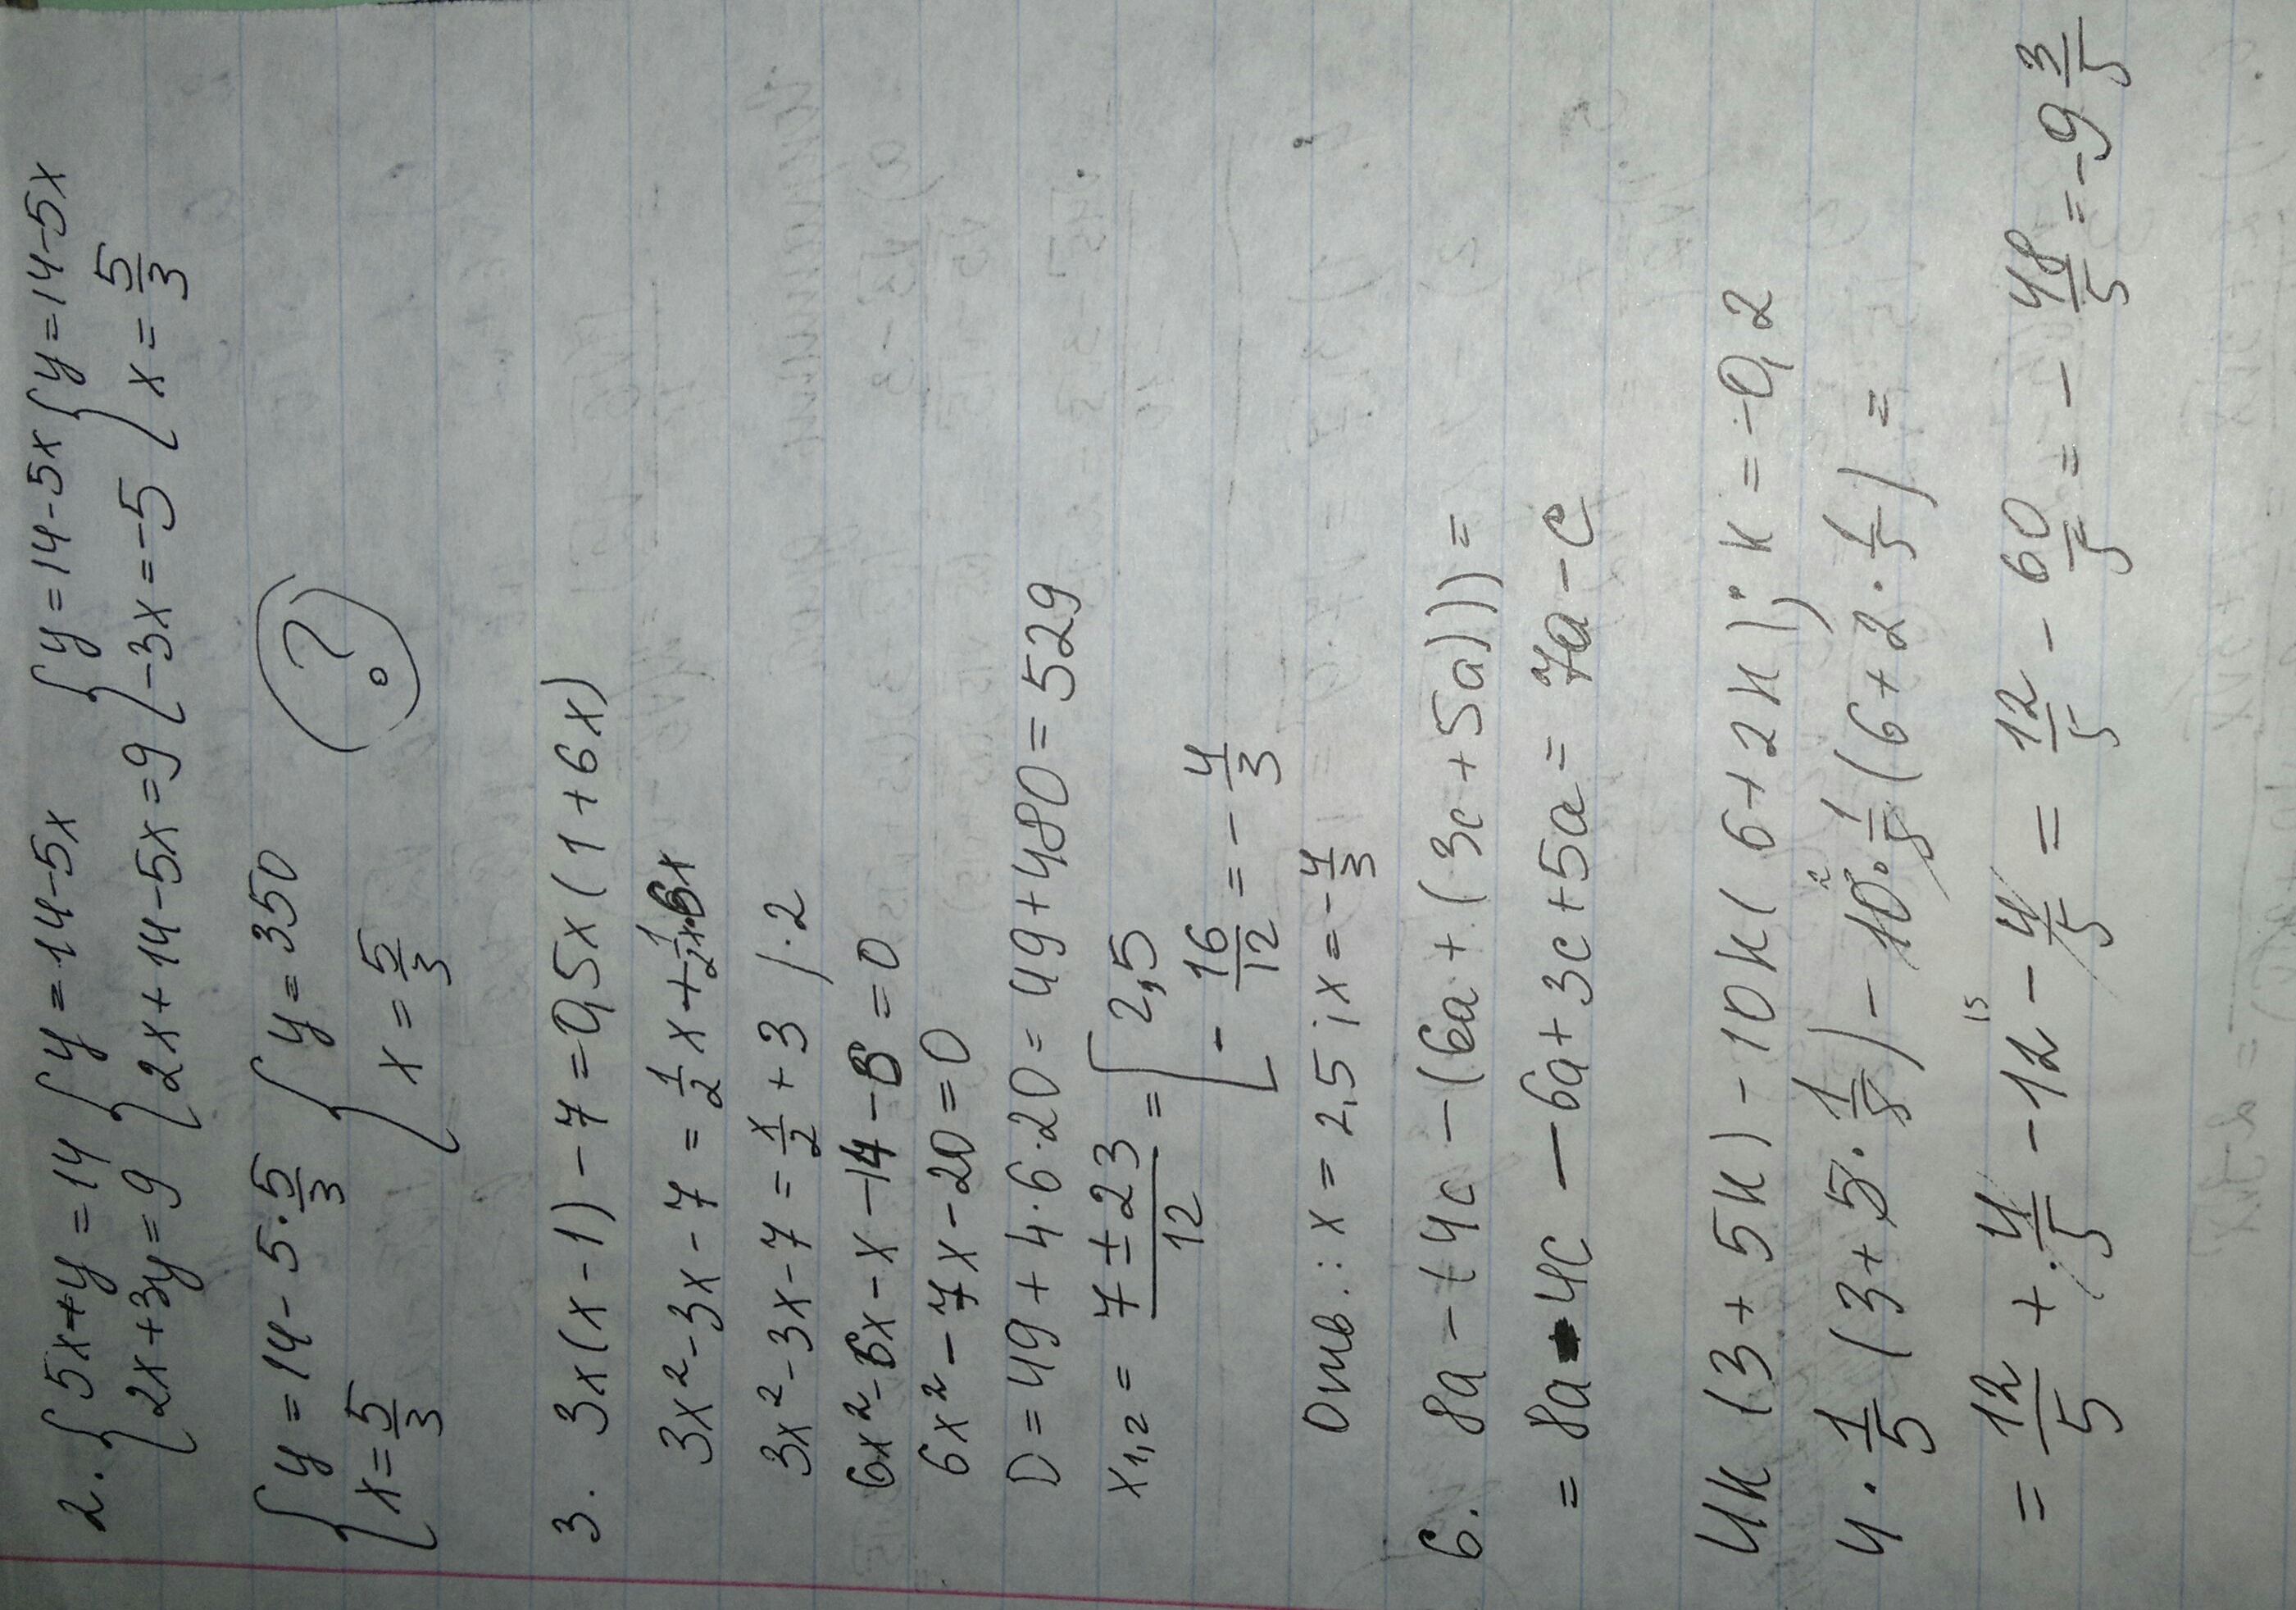 2. { 5x+y=14 { y=14-5x { y=14-5x { y=14-5x
2x+3y=9 2x+14-5x=9 -3x=-5 x=5/3
{ y=14-5·5/3 { y=350 (?)
x=5/3 x=5/3
3. 3x(x-1)-7=0,5x(1+6x)
3x²-3x-7=1/2x+1/2x·6x
3x²-3x-7=x/2+3 /·2
6x²-6x-x-14-6=0
6x²-7x-20=0
D=49+4·6·20=49+480=529
x1,2=7±23/12=[ 2,5
-16/12=-4/3
Отв.: x=2,5; x=-4/3
6. 8a-(4c-(6a+(3c+5a)))=
=8a-4c-6a+3c+5a=7a-c
4k(3+5k)-10k(6+2k); k=-0,2
4·1/5(3+5·1/5)-10·1/5(6+2·1/5)=
=12/5+4/5-12-4/5=12/5-60/5=-48/5=-9 3/5